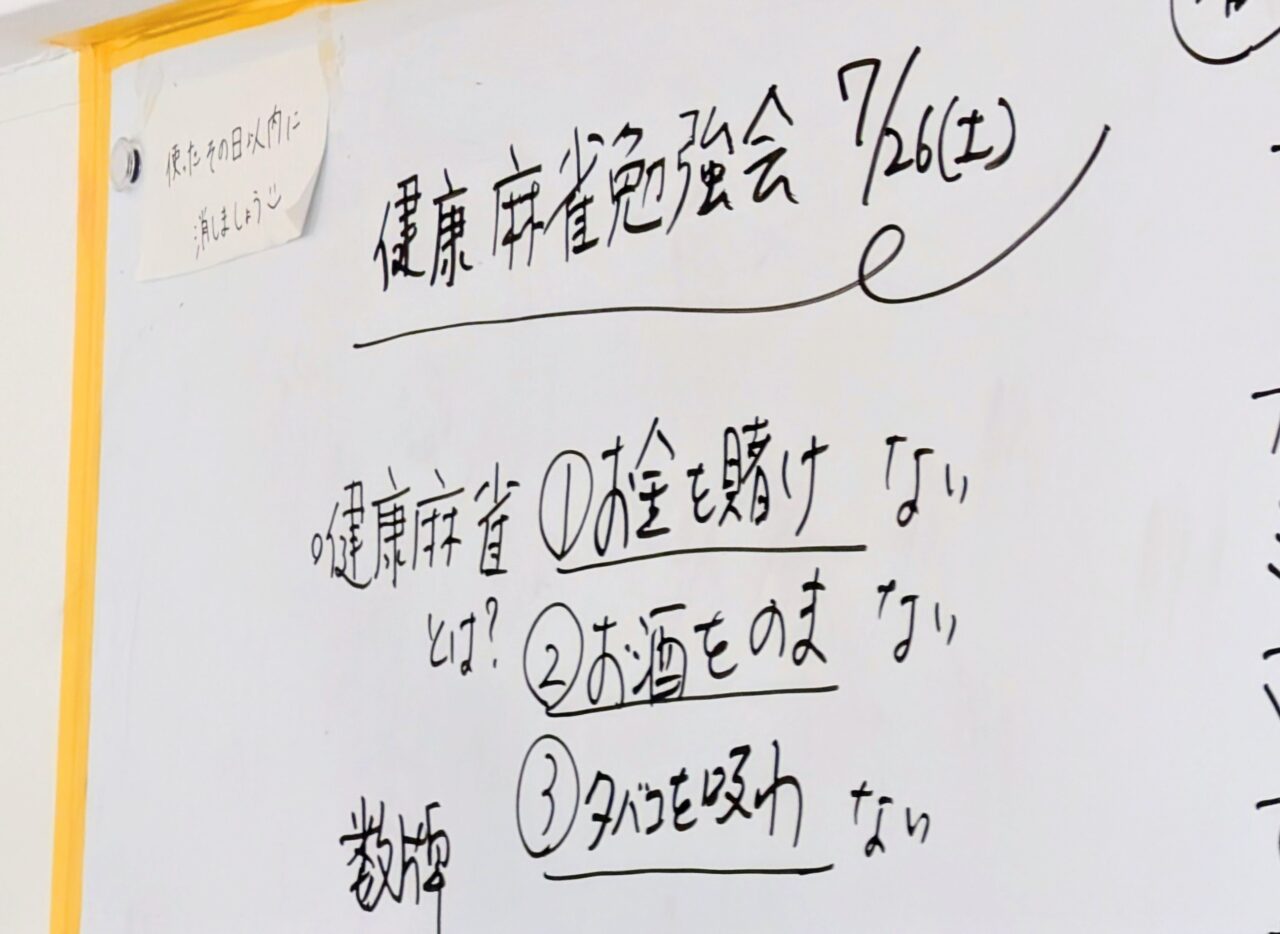 使ったその日以内に
消しましょう
健康麻雀勉強会 7/26(土)
。健康麻雀
とは?
①お金を賭け ない
②お酒をのま ない
③タバコを吸わ ない
数牌